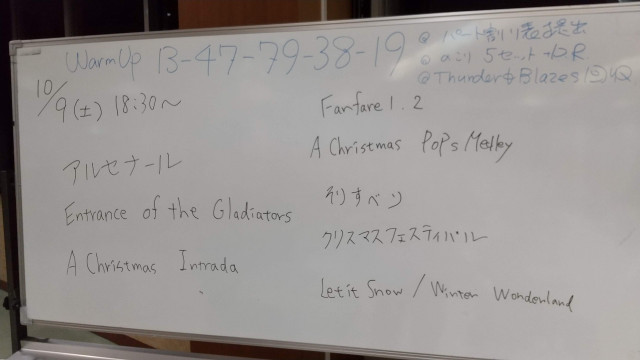 Warm Up 13-47-79-38-19
@ パート割り表提出
@ Thunder & Blazes
10/9(土) 18:30〜
アルセナール
Entrance of the Gladiators
A Christmas Intrada
Fanfare 1.2
A Christmas PoPs Medley
そりすべり
クリスマスフェスティバル
Let it Snow / Winter Wonderland